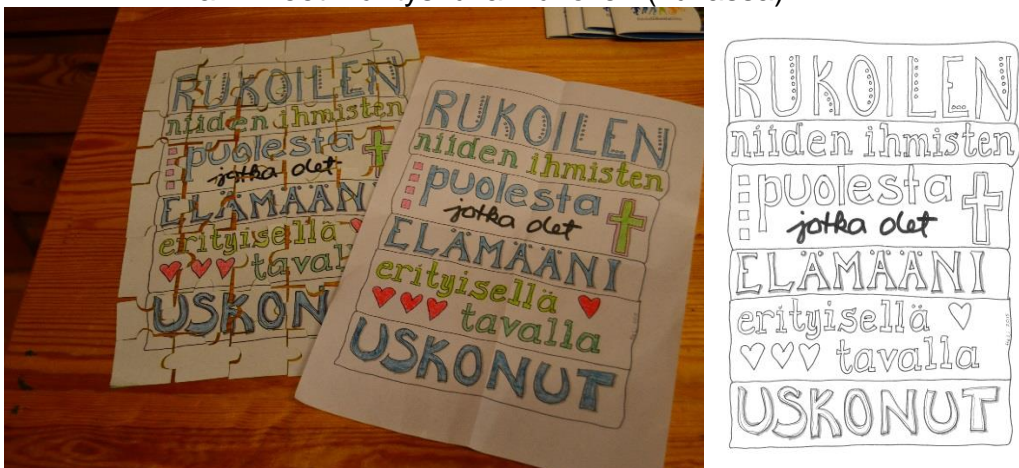 RUKOILEN
niiden ihmisten
puolesta
jotka olet
ELÄMÄÄNI
erityisellä
tavalla
USKONUT
RUKOILEN
niiden ihmisten
puolesta
jotka olet
ELÄMÄÄNI
erityisellä
tavalla
USKONUT
RUKOILEN
niiden ihmisten
puolesta
jotka olet
ELÄMÄÄNI
erityisellä
tavalla
USKONUT